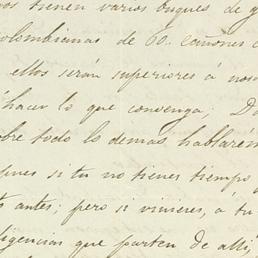 os tienen varios buques de g
olombianas de 60. cañones c
ellos serán superiores á nos
á hacer lo que convenga; D
obre todo lo demas, hablarém
pues si tu no tienes tiempo
s antes; pero si vinieres, á tu
ligencias que parten de alli,